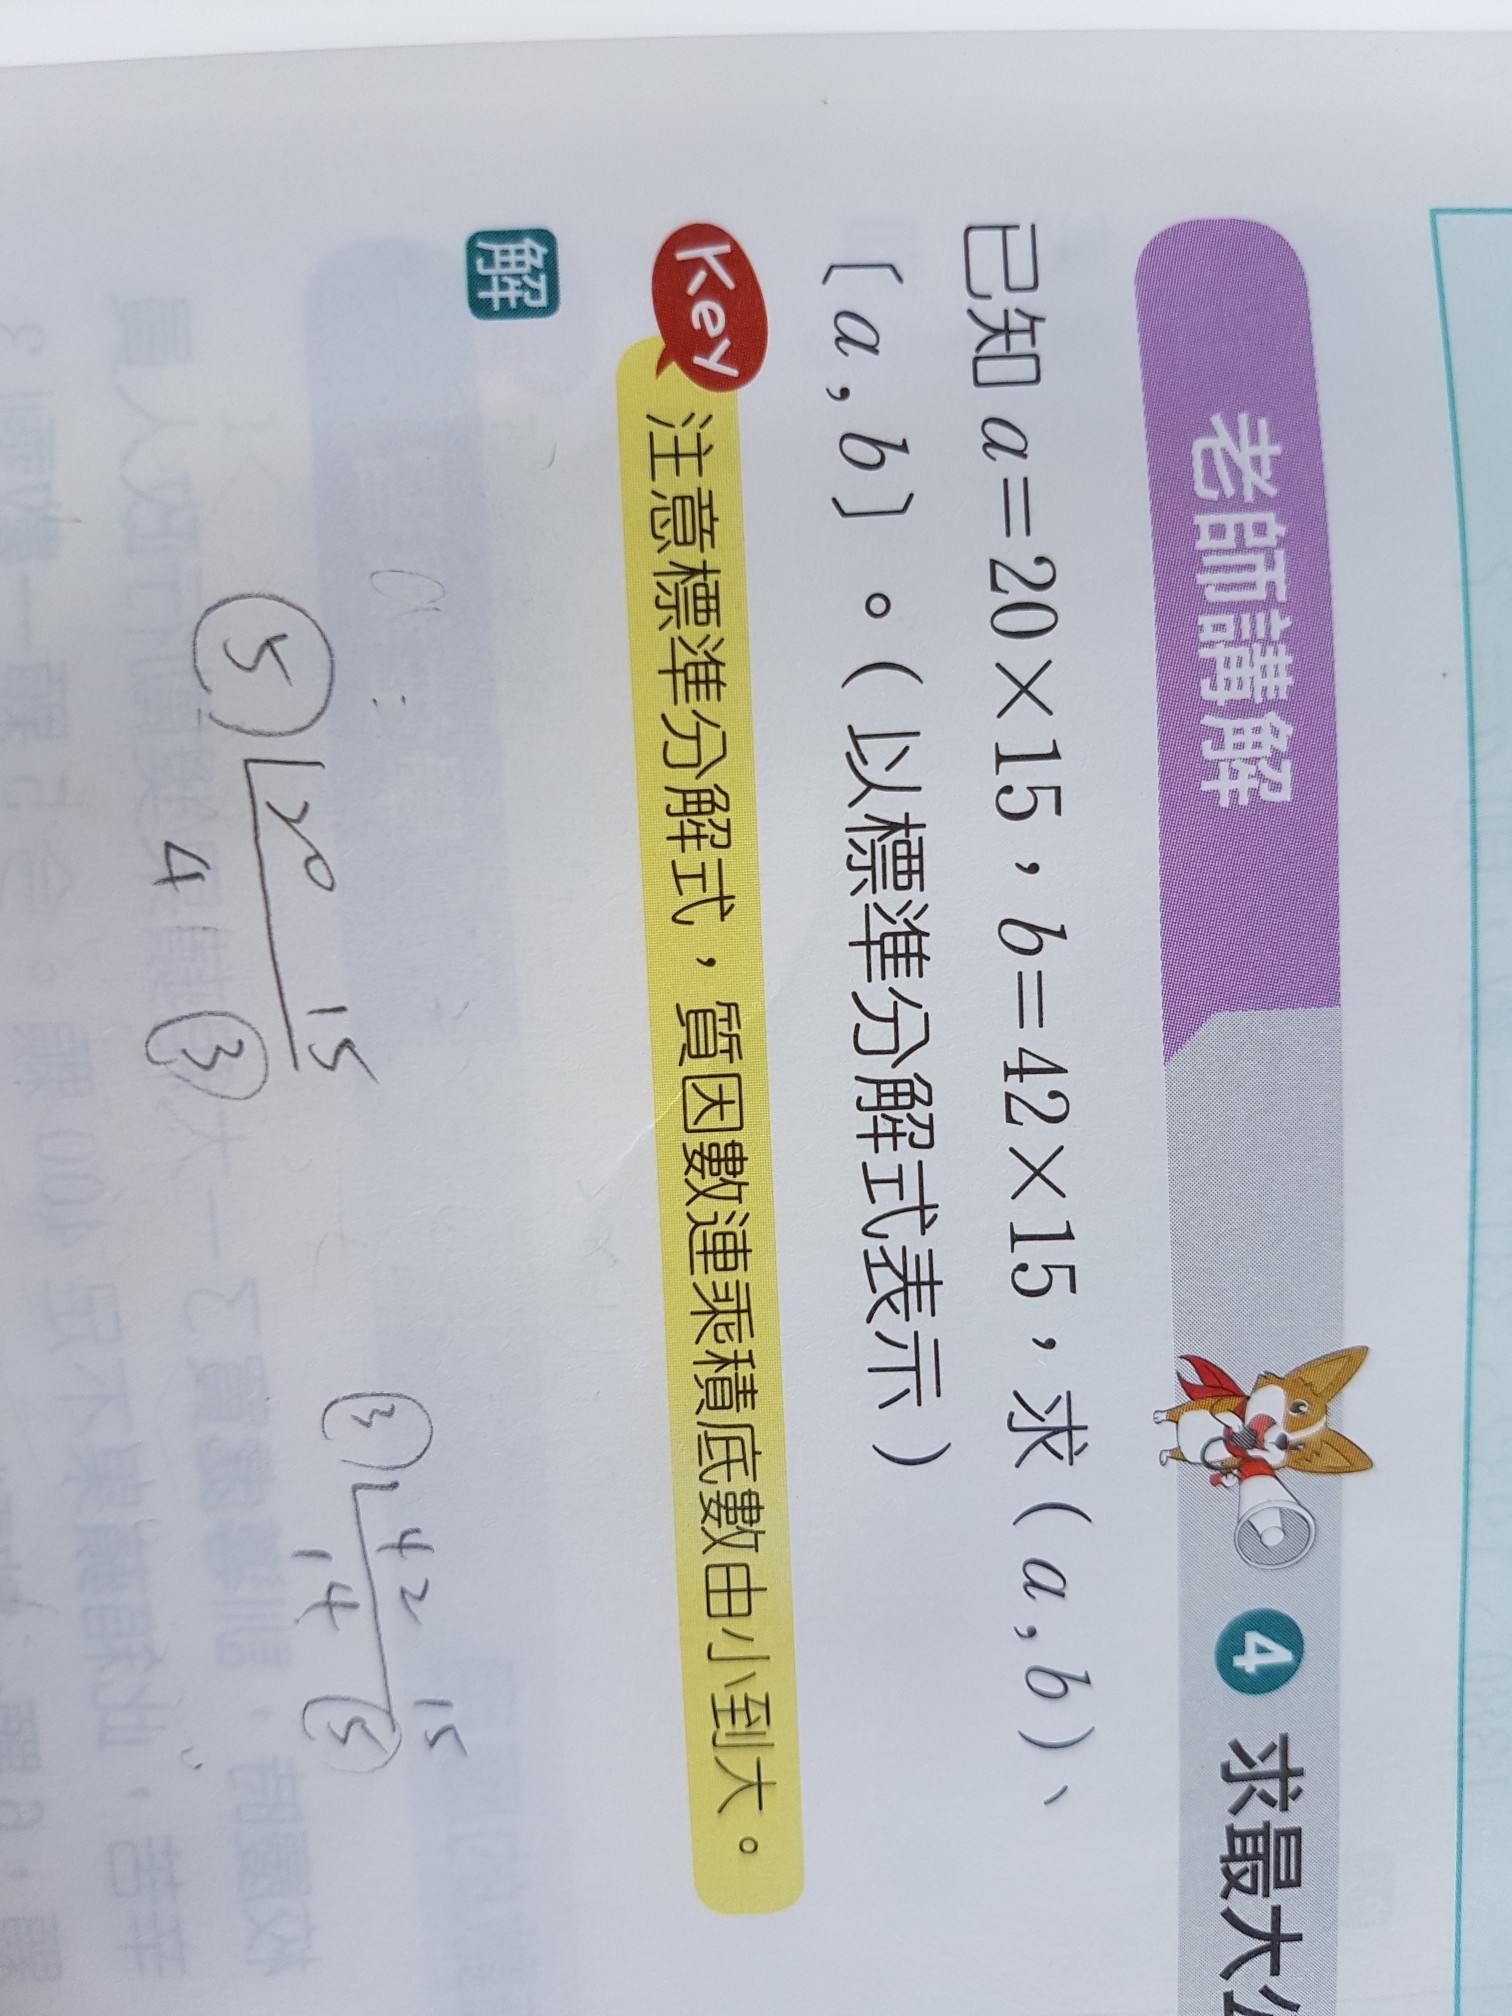 老師講解
4 求最大公
已知 a=20×15，b=42×15，求（a , b）、
〔a , b〕。（以標準分解式表示）
Key 注意標準分解式，質因數連乘積底數由小到大。
解
a :
5 20 15
4 3
3 42 15
14 5